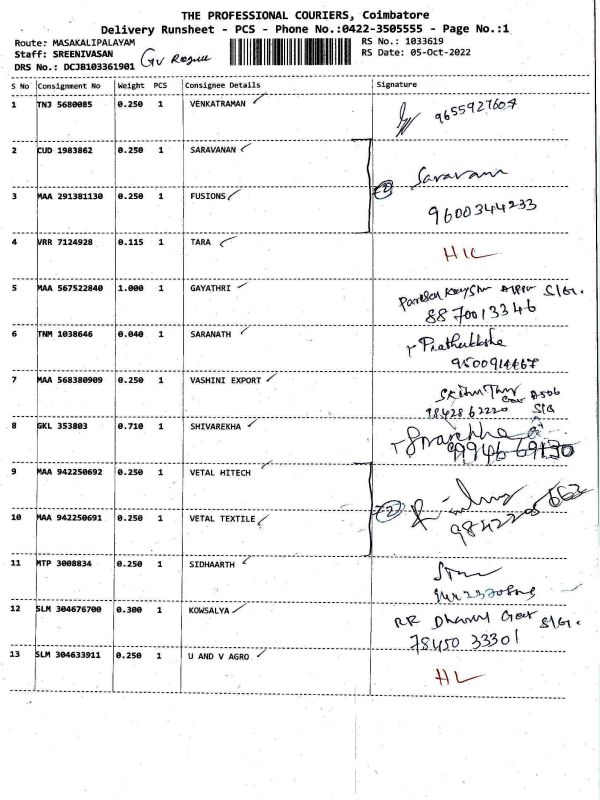 THE PROFESSIONAL COURIERS, Coimbatore
Delivery Runsheet - PCS - Phone No.:0422-3505555 - Page No.:1
Route: MASAKALIPALAYAM
RS No.: 1033619
Staff: SREENIVASAN
RS Date: 05-Oct-2022
DRS No.: DCJB103361901
S No Consignment No Weight PCS Consignee Details Signature
1 TNJ 5680085 0.250 1 VENKATRAMAN 9655927604
2 CUD 1983862 0.250 1 SARAVANAN Saravanan
3 MAA 291381130 0.250 1 FUSIONS 9600344233
4 VRR 7124928 0.115 1 TARA
5 MAA 567522840 1.000 1 GAYATHRI S/G.
8870013346
6 TNM 1038646 0.040 1 SARANATH
9500914467
7 MAA 568380909 0.250 1 VASHINI EXPORT
9842862220 S/G
8 GKL 353803 0.710 1 SHIVAREKHA
9 MAA 942250692 0.250 1 VETAL HITECH
10 MAA 942250691 0.250 1 VETAL TEXTILE
11 MTP 3008834 0.250 1 SIDHAARTH
12 SLM 304676700 0.300 1 KOWSALYA RR S/G.
78450 33301
13 SLM 304633911 0.250 1 U AND V AGRO HL